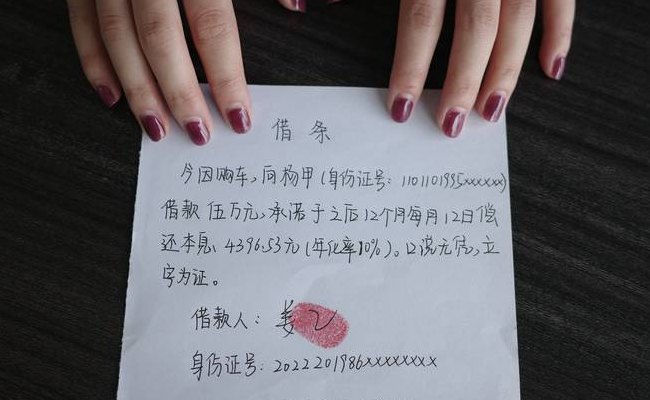 借条
今因购车,向杨甲(身份证号:1101101995xxxxxx)
借款伍万元,承诺于之后12个月每月12日偿
还本息、4396.53元(年化率10%)。口说无凭,立
字为证。
借款人:姜乙
身份证号:2022201986xxxxxxxx